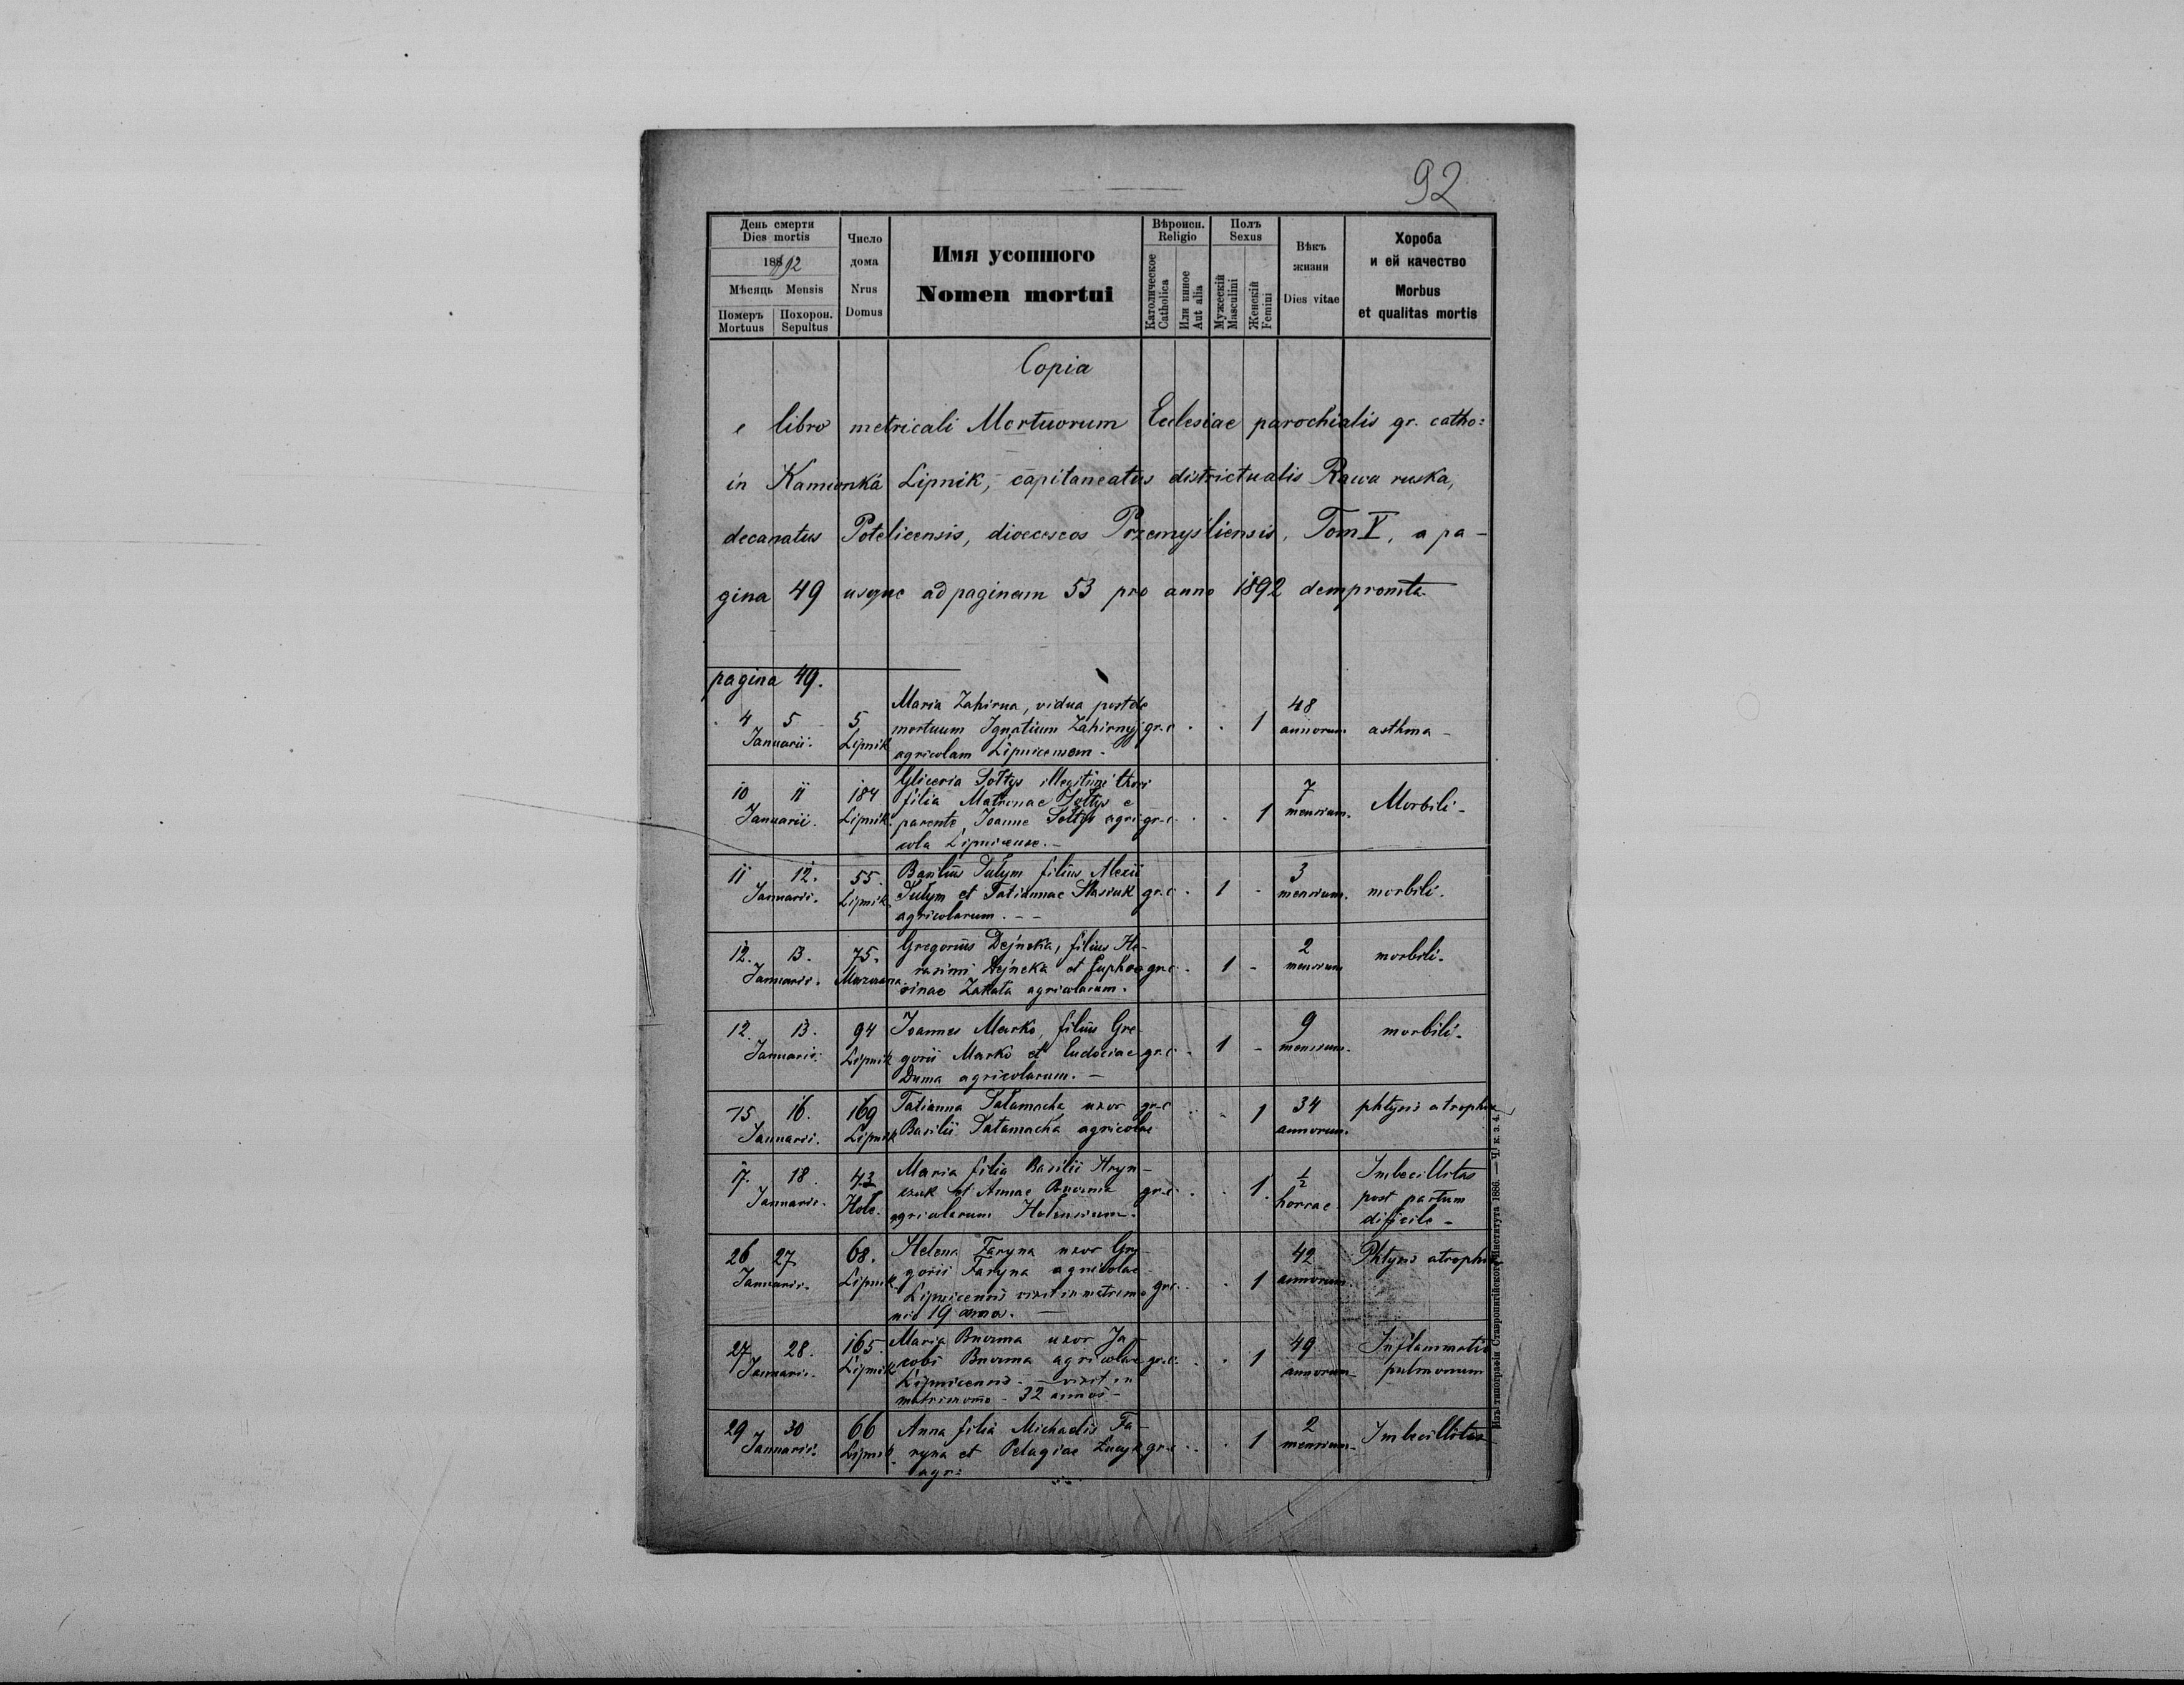 92
День смерти
Dies mortis
1892
Мѣсяць Mensis
Померъ Mortuus
Похорон. Sepultus
Число дома
Nrus Domus
Имя усопшого
Nomen mortui
Вѣроисп.
Religio
Католическое Catholica
Или инное Aut alia
Полъ
Sexus
Мужескій Masculini
Женскій Femini
Вѣкъ жизни
Dies vitae
Хороба
и ей качество
Morbus
et qualitas mortis
Copia
e libro metricali Mortuorum Ecclesiae parochialis gr. catho:
in Kamionka Lipnik, capitaneatus districtualis Rawa ruska,
decanatus Potelicensis, dioeceseos Przemysliensis, Tom V, a pa-
gina 49 usque ad paginam 53 pro anno 1892 dempromta
pagina 49.
Maria Zahirna, vidua post de
4 5 5 mortuum Ignatium Zahirnyj gr. c . . 1 48 annorum asthma -
Januarii. Lipnik agricolam Lipnicensem -
Gliceria Sołtys illegitimi thori
10 11 184 filia Matronae Sołtys e
Januarii. Lipnik parente Joanne Sołtys agri- gr. c . . 1 7 mensium. Morbili -
cola Lipnicense. -
11 12. 55. Basilius Sułym filius Alexii
Januarii. Lipnik. Sułym et Tatiannae Stasiuk gr. c . 1 - 3 mensium. morbili.
agricolarum. - -
12. 13. 75. Gregorius Dejneka, filius He-
Januarii. rasimi Dejneka et Euphro gr. c . 1 - 2 mensium morbili.
sinae agricolarum.
12. 13. 94 Joannes Marko, filius Gre-
Januarii. Lipnik gorii Marko et Eudociae gr. c . 1 - 9 mensium. morbili.
Duma agricolarum. -
15 16. 169 Tatianna Sałamacha uxor gr. c . . 1 34 phtysis atrophia
Januarii. Lipnik Basilii Sałamacha agricolae annorum.
17. 18. 43 Maria filia Basilii Hryn-
Januarii. Hole. czuk et Annae gr. c . . 1. 1/2 horrae Imbecillitas
agricolarum post partum
dificile -
26 27 68. Helena Faryna uxor Gre-
Januarii. Lipnik gorii Faryna agricolae
Lipnicensis vixit in matrimo gr. c . . 1 42 annorum Phtysis atrophia
nio 19 annos. -
27 28. 165. Maria uxor Ja-
Januarii. Lipnik cobi agricolae gr. c . . 1 49 annorum Inflammatio
Lipnicensis - vixit in pulmonum
matrimonio - 32 annos -
29 30 66 Anna filia Michaelis Fa-
Januarii. Lipnik. ryna et Pelagiae gr. c . . 1 2 mensium - Imbecillitas
agr:
Изъ типографіи Ставропигійского Института 1886. — Ч. к. з. 4.